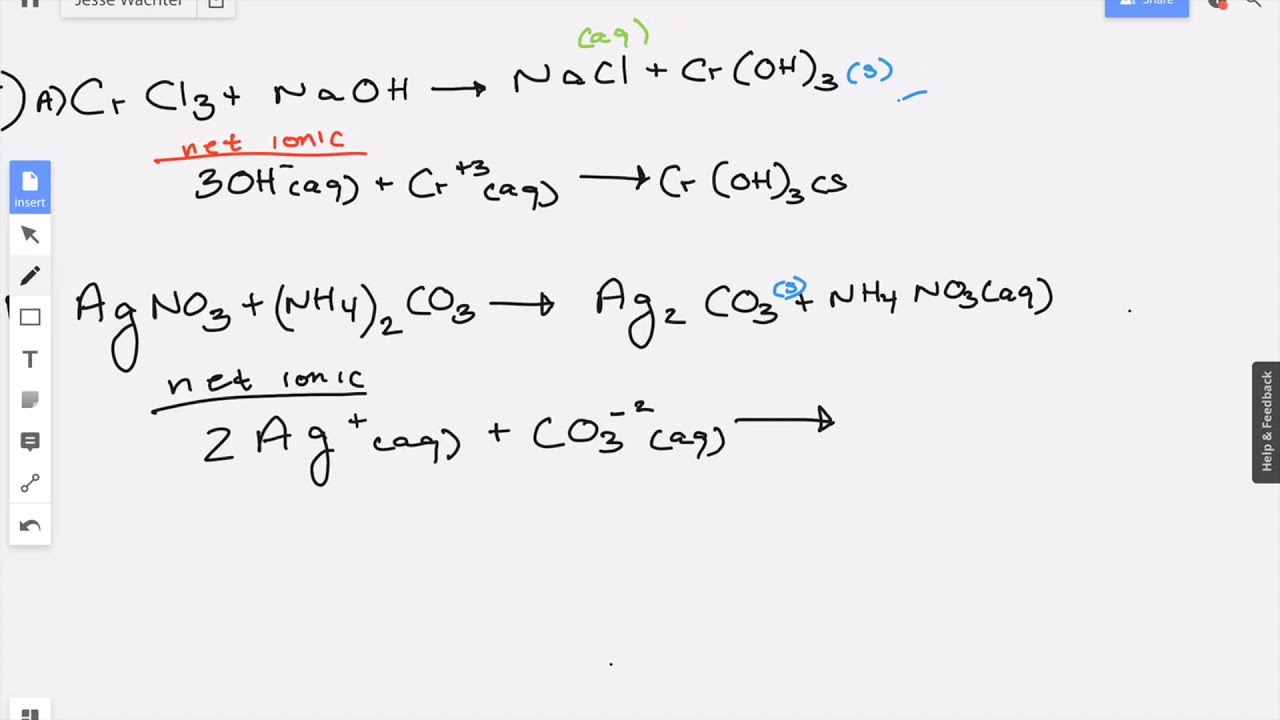 Jesse Wachter
Share
(aq)
A) Cr Cl3 + NaOH → NaCl + Cr(OH)3 (s)
net ionic
3OH-(aq) + Cr+3(aq) → Cr(OH)3 cs
insert
AgNO3 + (NH4)2 CO3 → Ag2 CO3 (s) + NH4 NO3(aq)
net ionic
2 Ag+(aq) + CO3-2(aq) →
T
Help & Feedback